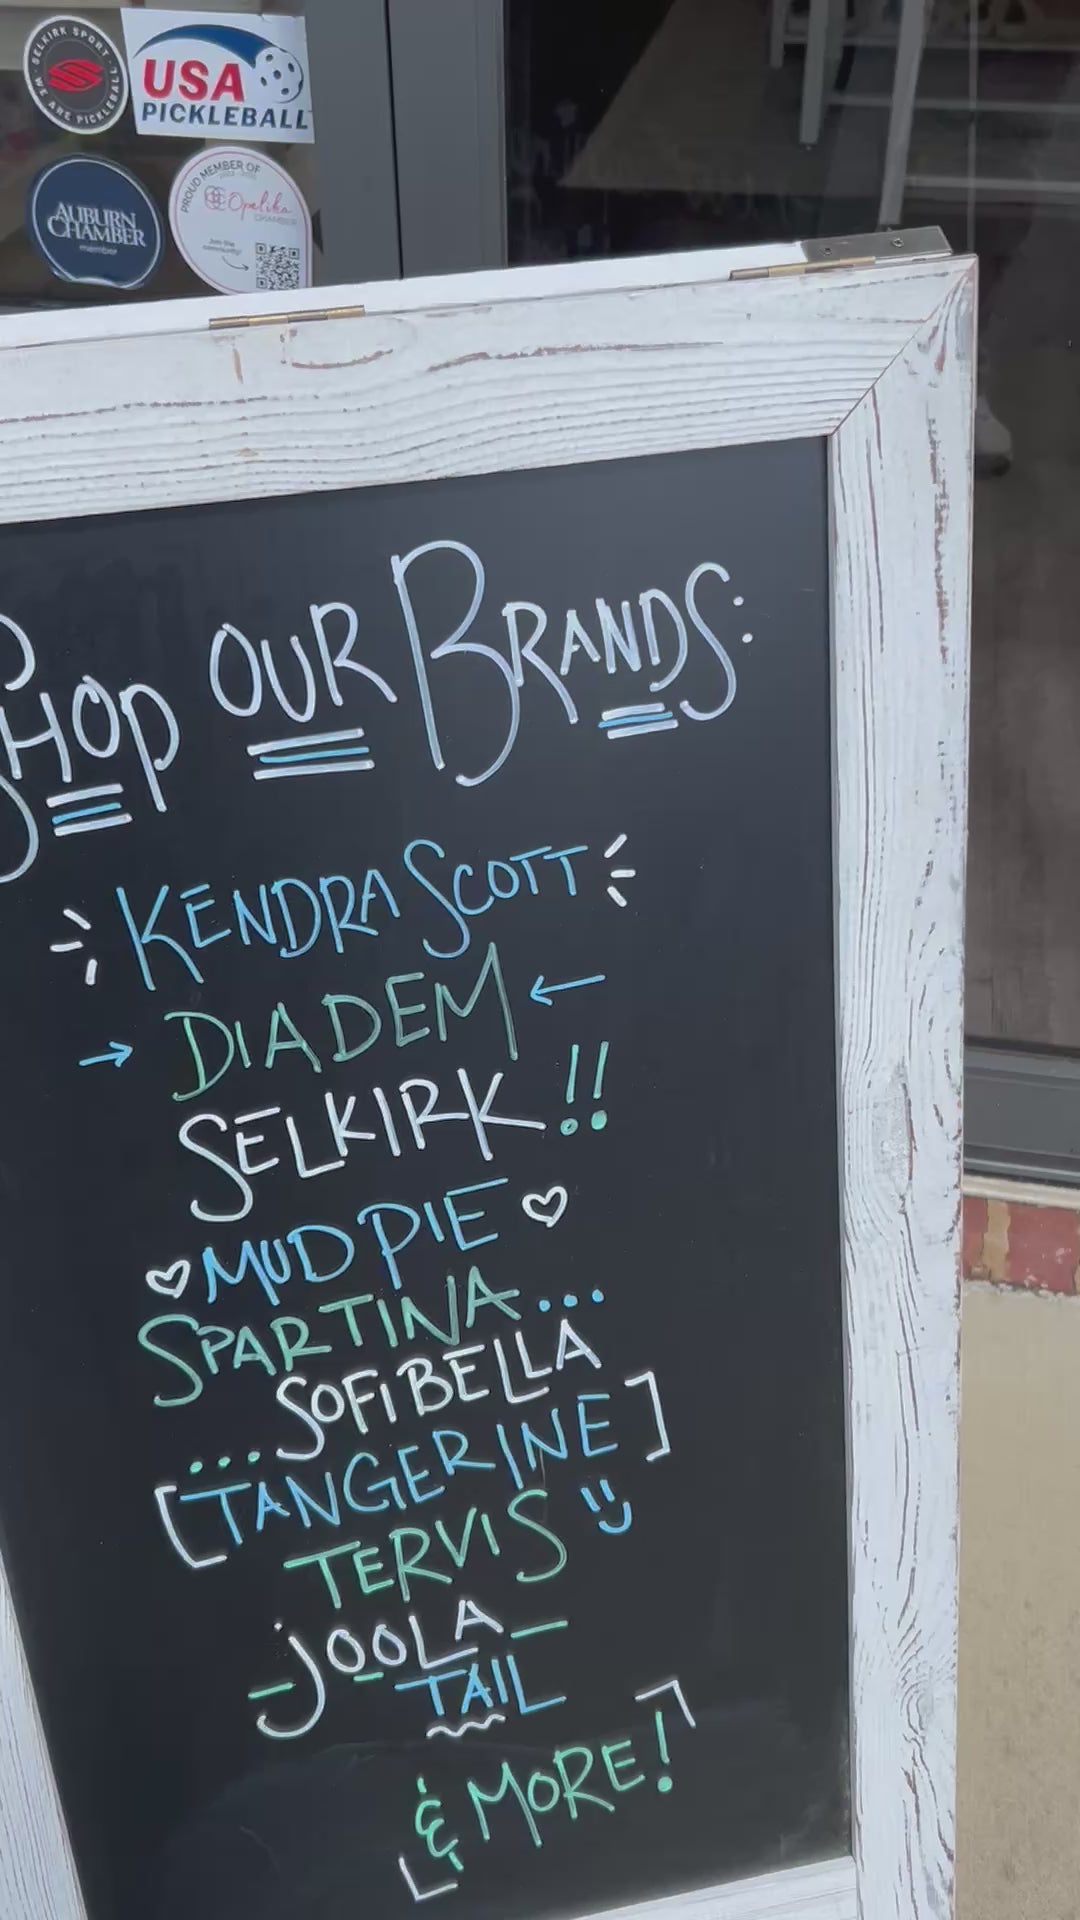 SELKIRK SPORT
WE ARE PICKLEBALL
USA
PICKLEBALL
AUBURN
CHAMBER
member
PROUD MEMBER OF
Opelika
CHAMBER
Join the
community!
SHOP OUR BRANDS:
KENDRA SCOTT
DIADEM
SELKIRK !!
MUD PIE
SPARTINA...
...SOFIBELLA
[TANGERINE]
TERVIS
-JOOLA-
TAIL
& MORE!